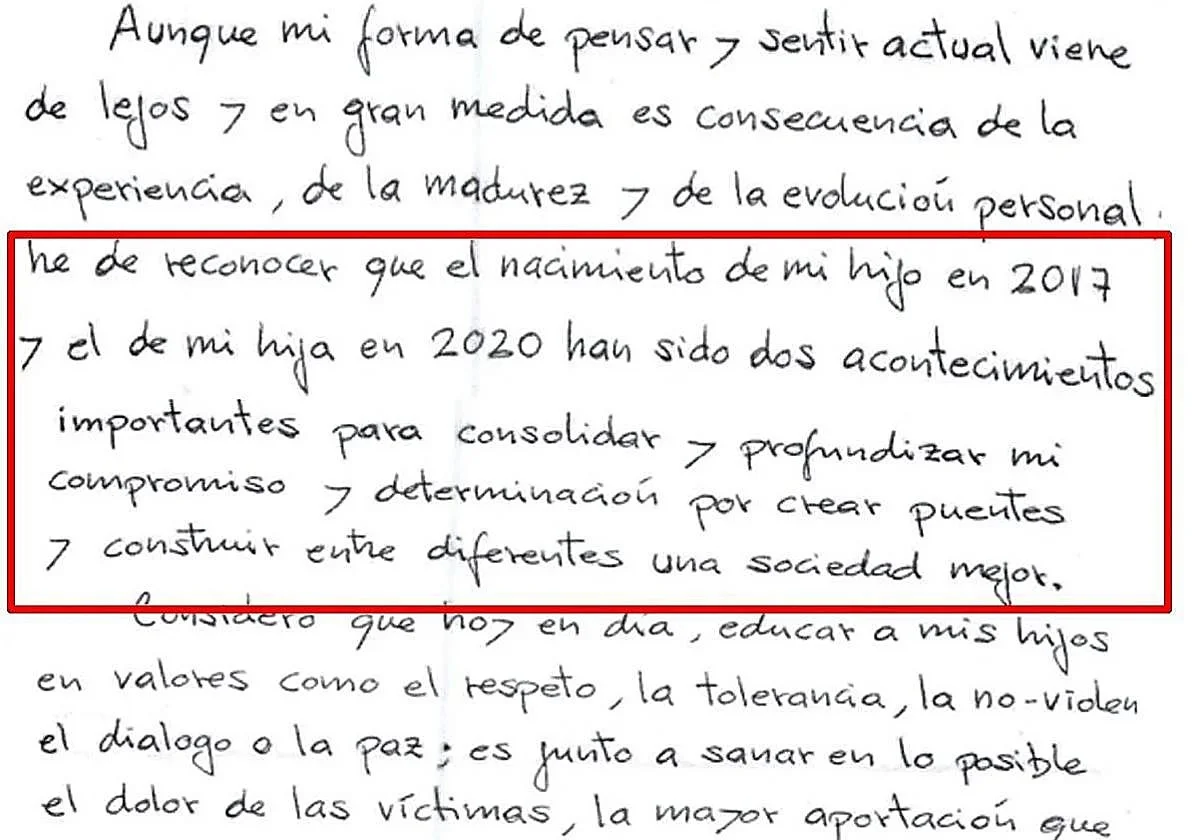 Aunque mi forma de pensar y sentir actual viene
de lejos y en gran medida es consecuencia de la
experiencia, de la madurez y de la evolución personal.
he de reconocer que el nacimiento de mi hijo en 2017
y el de mi hija en 2020 han sido dos acontecimientos
importantes para consolidar y profundizar mi
compromiso y determinación por crear puentes
y construir entre diferentes una sociedad mejor.
Considero que hoy en día, educar a mis hijos
en valores como el respeto, la tolerancia, la no-violen
el dialogo o la paz; es junto a sanar en lo posible
el dolor de las víctimas, la mayor aportación que